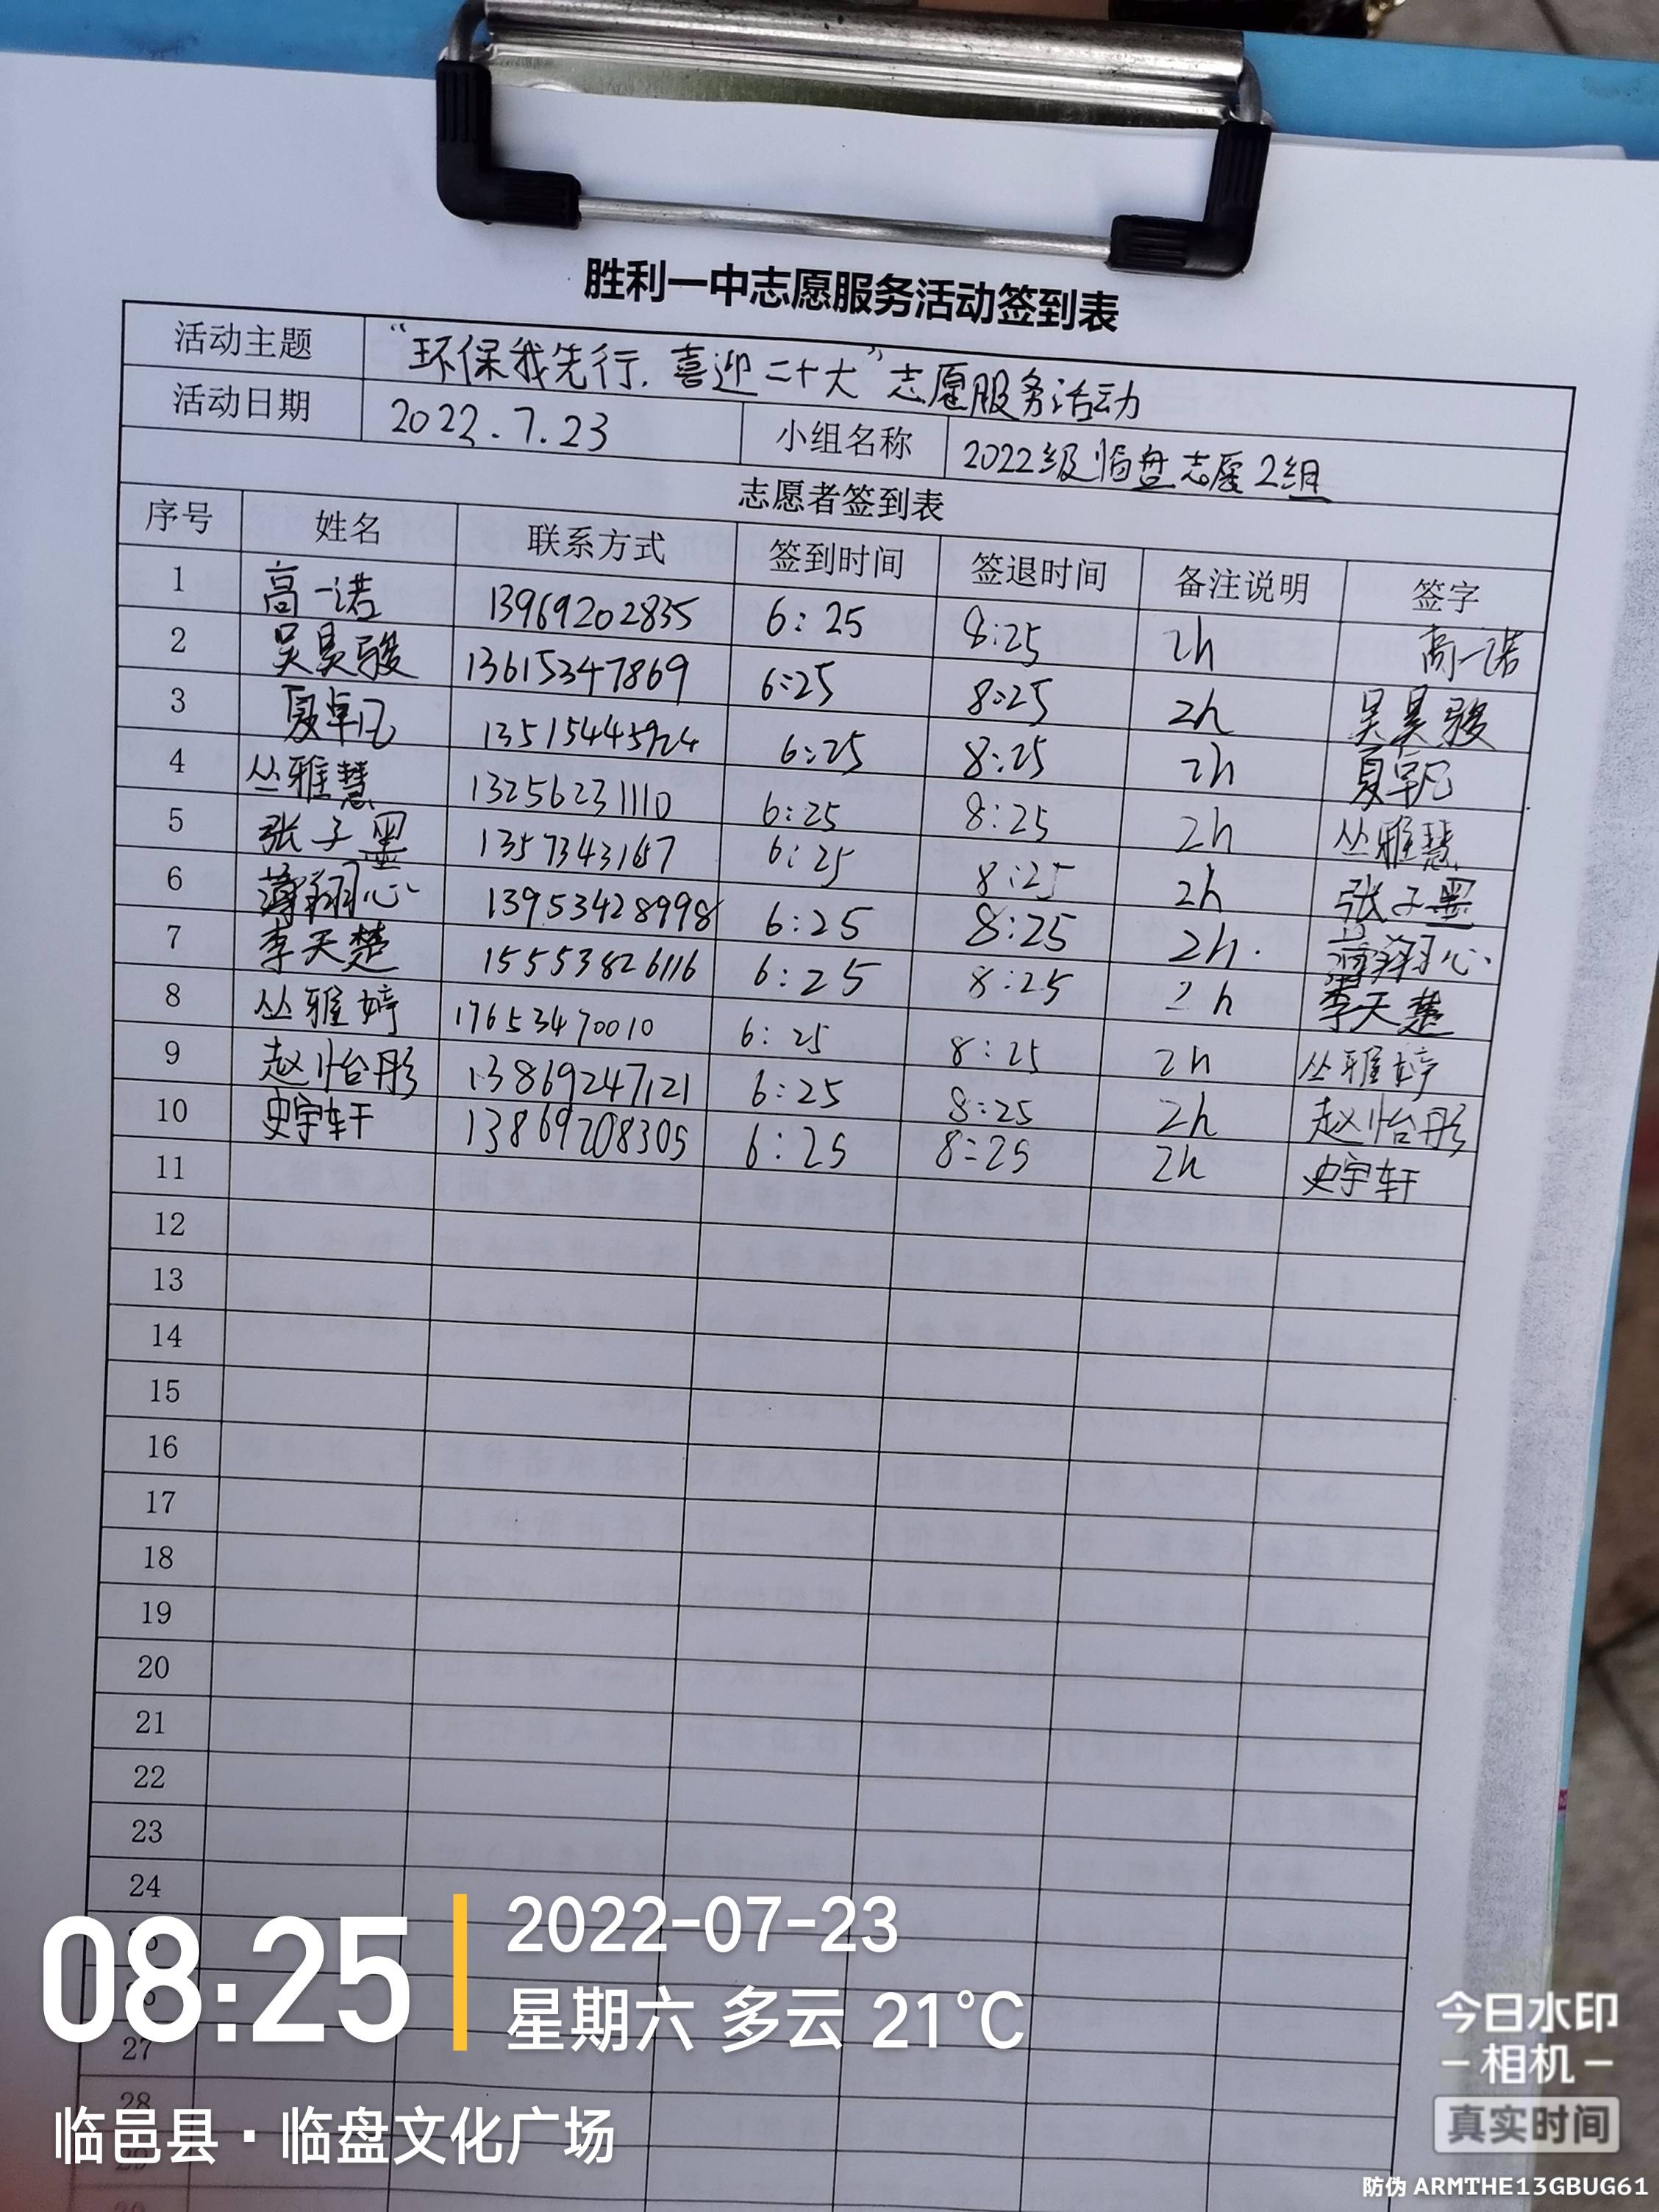 胜利一中志愿服务活动签到表
活动主题 “环保我先行，喜迎二十大”志愿服务活动
活动日期 2022.7.23 小组名称 2022级临盘志愿2组
志愿者签到表
序号 姓名 联系方式 签到时间 签退时间 备注说明 签字
1 高一诺 13969202835 6:25 8:25 2h 高一诺
2 吴昊骏 13615347869 6:25 8:25 2h 吴昊骏
3 夏卓凡 6:25 8:25 2h 夏卓凡
4 丛雅慧 13256231110 6:25 8:25 2h 丛雅慧
5 张子墨 1357343167 6:25 8:25 2h 张子墨
6 薄翔心 13953428998 6:25 8:25 2h. 薄翔心
7 李天楚 15553826116 6:25 8:25 2h 李天楚
8 丛雅婷 17653470010 6:25 8:25 2h 丛雅婷
9 赵怡彤 13869247121 6:25 8:25 2h 赵怡彤
10 史宇轩 13869208305 6:25 8:25 2h 史宇轩
11
12
13
14
15
16
17
18
19
20
21
22
23
24
27
28
08:25
2022-07-23
星期六 多云 21°C
临邑县·临盘文化广场
今日水印
-相机-
真实时间
防伪 ARMTHE13GBUG61